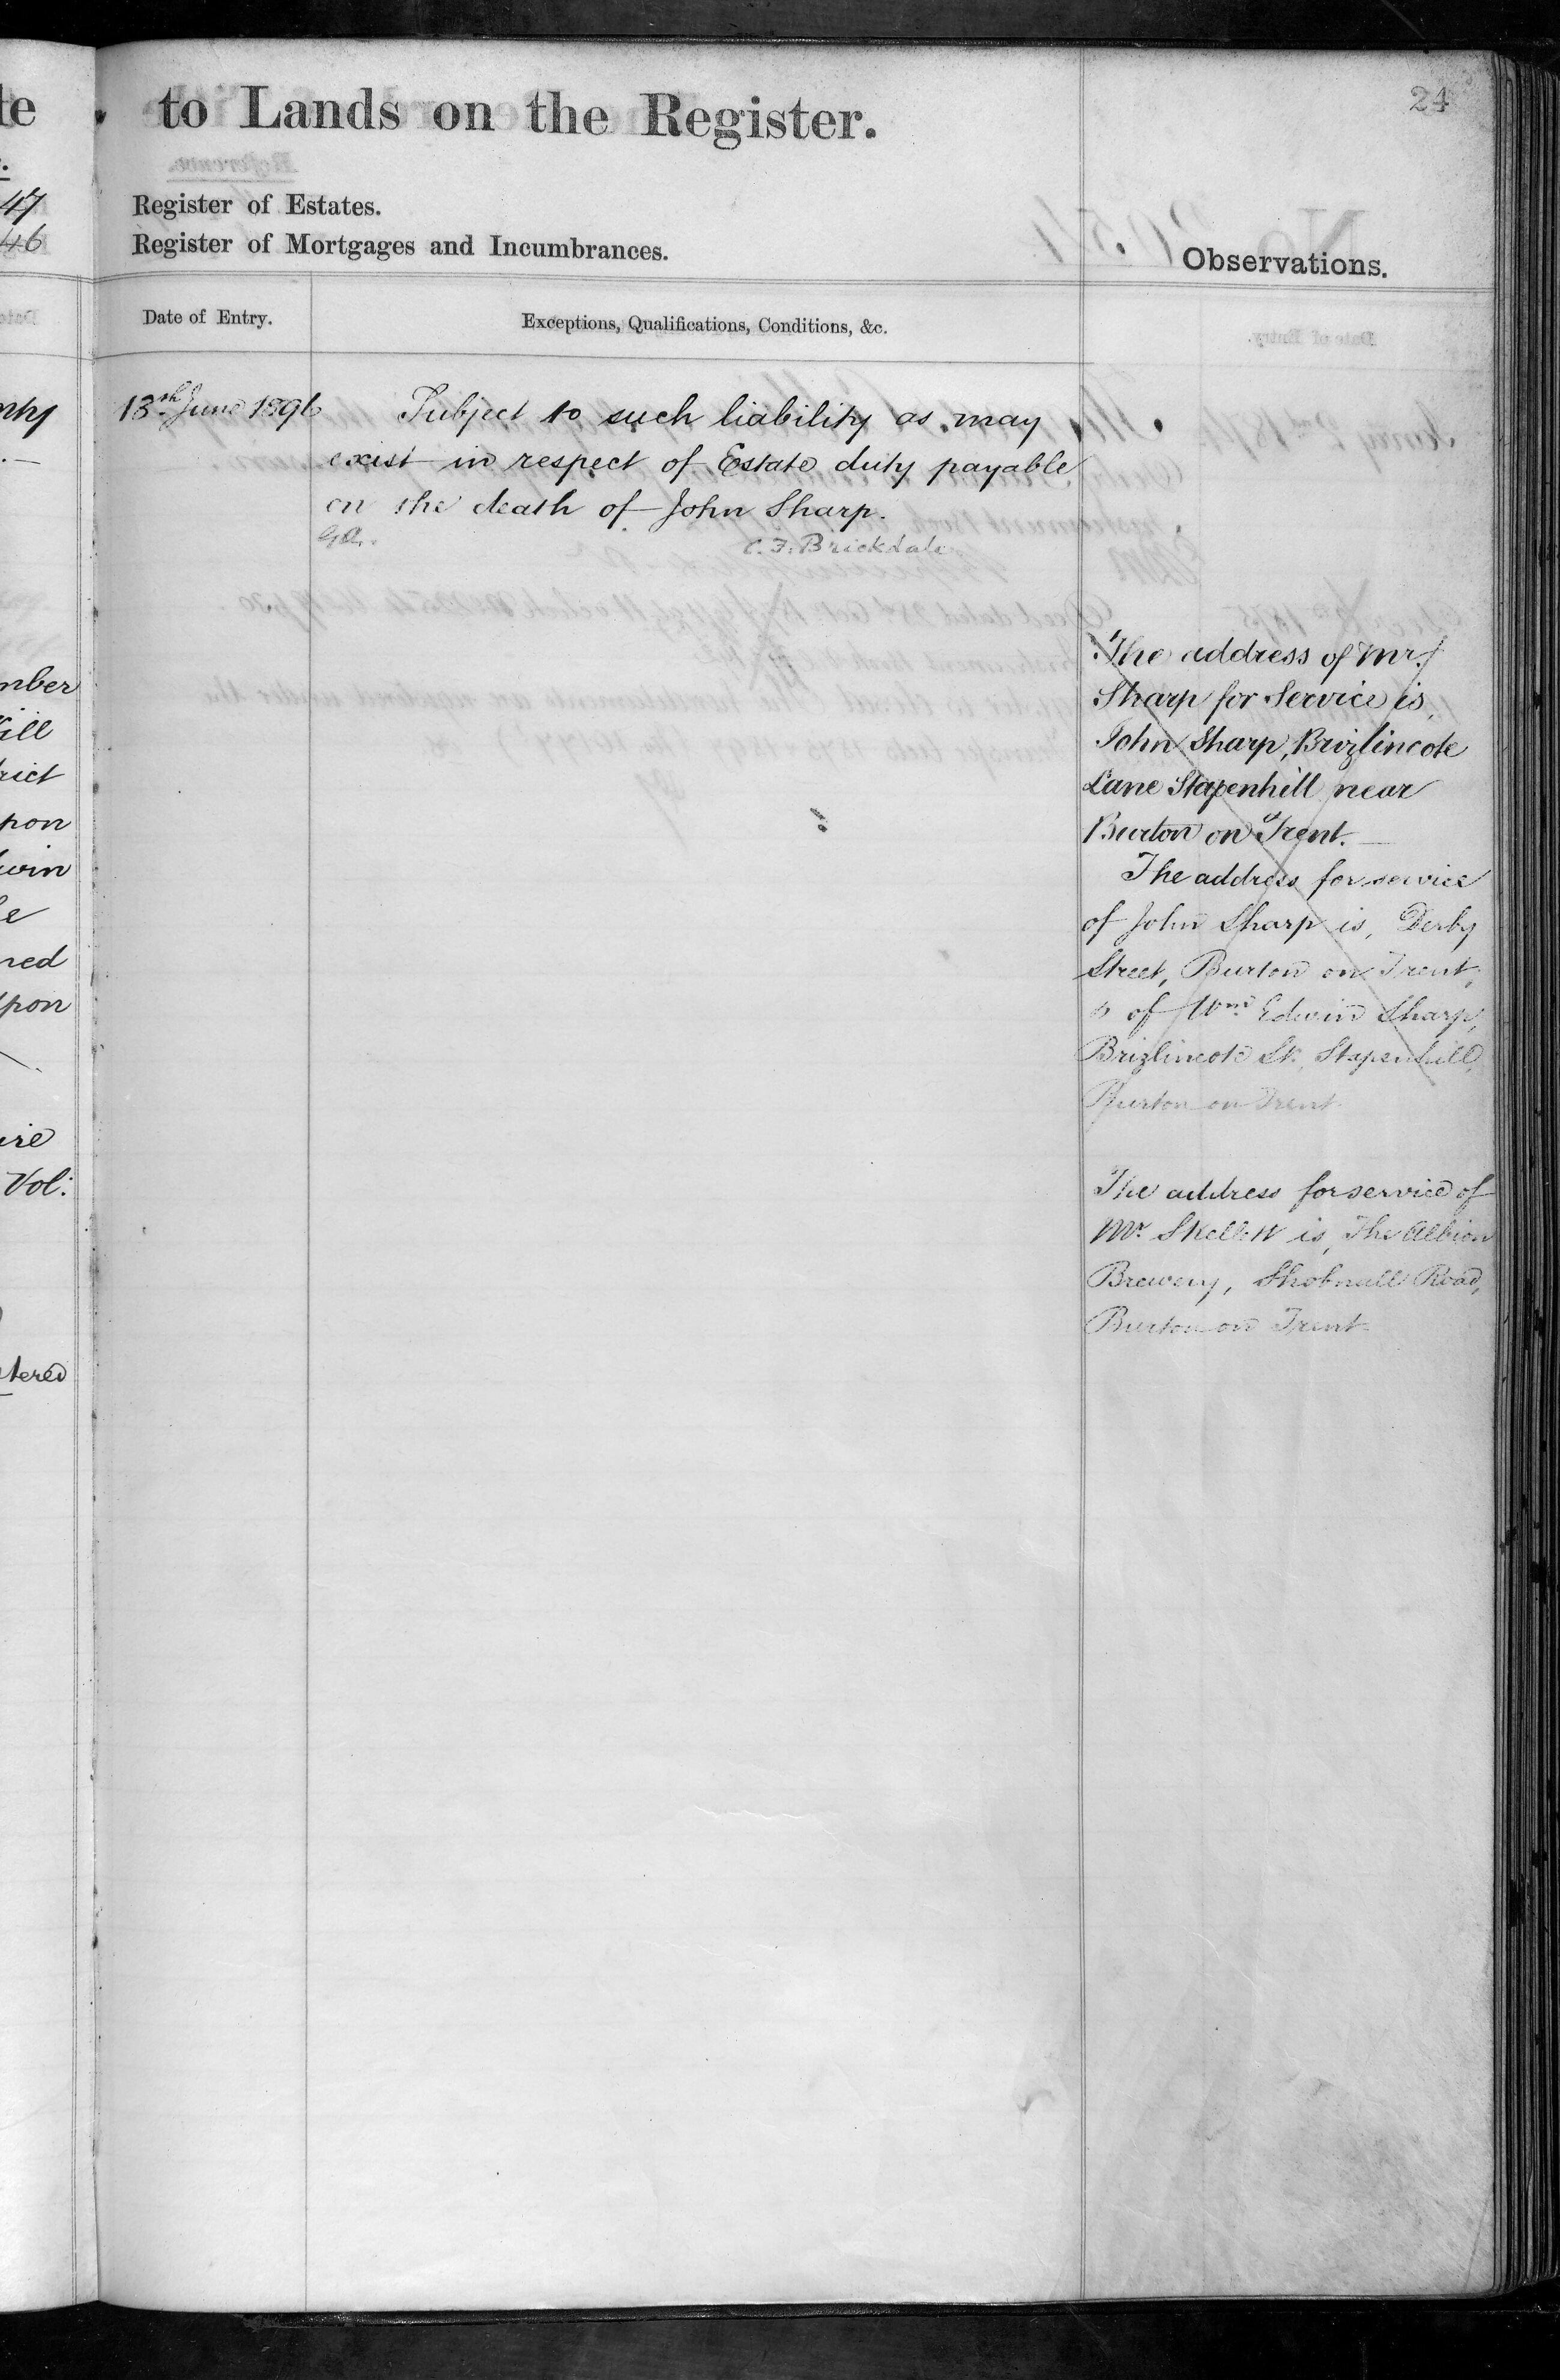 24
to Lands on the Register.
Register of Estates.
Register of Mortgages and Incumbrances.
Observations.
Date of Entry.
Exceptions, Qualifications, Conditions, &c.
13th June 1896
Subject to such liability as may
exist in respect of Estate duty payable
on the death of John Sharp.
C. F. Brickdale
The address of Mr.
Sharp for Service is,
John Sharp, Brizlincote
Lane Stapenhill near
Burton on Trent. —
The address for service
of John Sharp is, Derby
Street, Burton on Trent,
& of Wm. Edwin Sharp,
Brizlincote St. Stapenhill,
Burton on Trent.
The address for service of
Mr. Skellett is, The Albion
Brewery, Shobnall Road,
Burton on Trent.
te
47
46
mber
ill
rict
pon
win
ned
upon
Vol:
stered